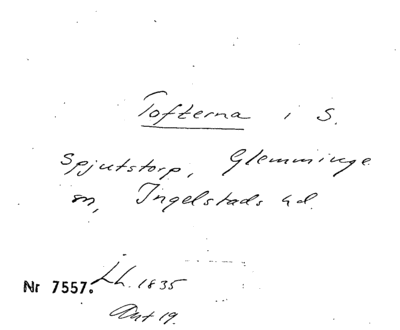 Tofterna i S.
Spjutstorp, Glemminge
sn, Ingelstads hd.
Nr 7557. Lh. 1835
Akt 19.